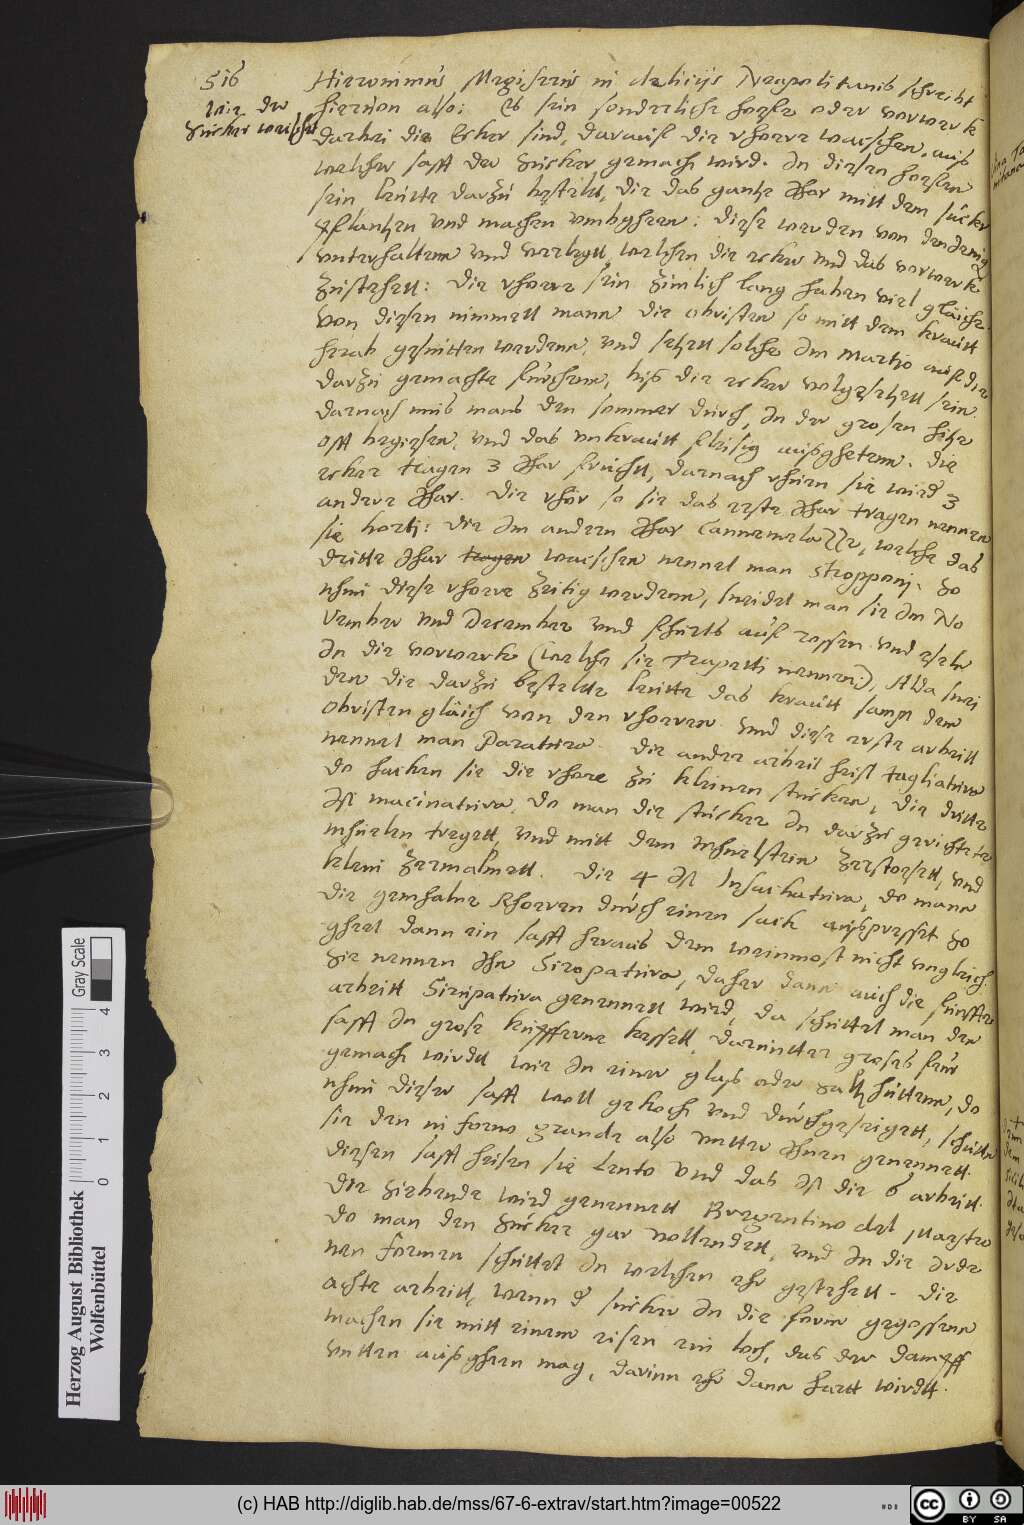 516
Wie der
Zucker wechst
Hieronimus Megiserus in delicijs Neapolitanis schreibt
hieruon also: Es sein sonderliche hoeffe oder vorwerk
darbei die Ecker sind, darauf die rhoere wachsen, aus
welcher safft der zucker gemach wird. In diesen hoefen
sein leutte darzu bestelt, die das gantze Jhar mitt dem sucker
pflantzen vnd machen vmbgheen: diese werden von denjenig
vnterhalten vnd verlegtt, welchen die ecker vnd das vorwerk
zustehett: Die rhoere sein zimlich lang haben viel gläiche
von diesen nimmett mann die obristen so mitt dem krautt
herab gesnitten werdenn, vnd setzett solche Im Martio auf die
darzu gemachte furchenn, biss die ecker volgesetzett sein.
Darnach mus mans den sommer durch, In der grosen hitze
offt begiesen, vnd das vnkrautt fleisig aussghetenn. Die
ecker tragen 3 Jhar frucht, darnach rhuen sie wird 3
andere Jhar. Die rhör so sie das erste Jhar tragen nennen
sie horti: die Im andern Jhar Cannemelazze, welche das
dritte Jhar tragen wachsen nennet man stropponj. So
nhun diese rhoere zeitig werdenn, sneidet man sie Im No
vember vnd December vnd fhurts auf rossen vnd eseln
In die vorwerke (welche sie Trapetti nennen), Alda snei
den die darzu bestelte leutte das krautt sampt dem
obristen gläich von den rhoeren. vnd diese erste arbeitt
nennet man Paratura. Die ander arbeit heist tagliatura
do hacken sie die rhore zu kleinen stucken, die dritte
Ist macinatura, do man die stucker In darzu gerichtete
mhuelen tregett, vnd mitt dem Mhuelstein zerstosett, vnd
klein zermalmett. Die 4 Ist Insachatura, do mann
die gemhalne Rhoeren durch einen sack auspresset so
gheet dann ein safft heraus dem weinmost nicht vngleich.
Sie nennen Ihn Siropatura, daher dann auch die funffte
arbeitt Sirupatura genennett wird, da schüttet man den
safft In grose kupfferne kessell, darunter groses feur
gemach wirdt wie In einer glas oder saltz hüttenn, do
nhun dieser safft woll gekoch vnd durchgeseigett, schütten
sie den in forno grande also vntter Ihnen genennett.
diesen safft heisen sie lento vnd das Ist die 6 arbeitt.
Die siebende wird genennett Bregentino del Maestro
do man den zucker gar vollendett, vnd In die Irde
nen formen schüttet In welchen ehr gestehett. Die
achte arbeitt, wenn d sucker In die form gegossenn
machen sie mitt einem eisen ein loch, das der dampff
vntten aussgheen mag, darinn ehr dann hartt wirdtt.
Herzog August Bibliothek
Wolfenbüttel
0 1 2 3 4
Gray Scale
(c) HAB http://diglib.hab.de/mss/67-6-extrav/start.htm?image=00522
cc
BY SA